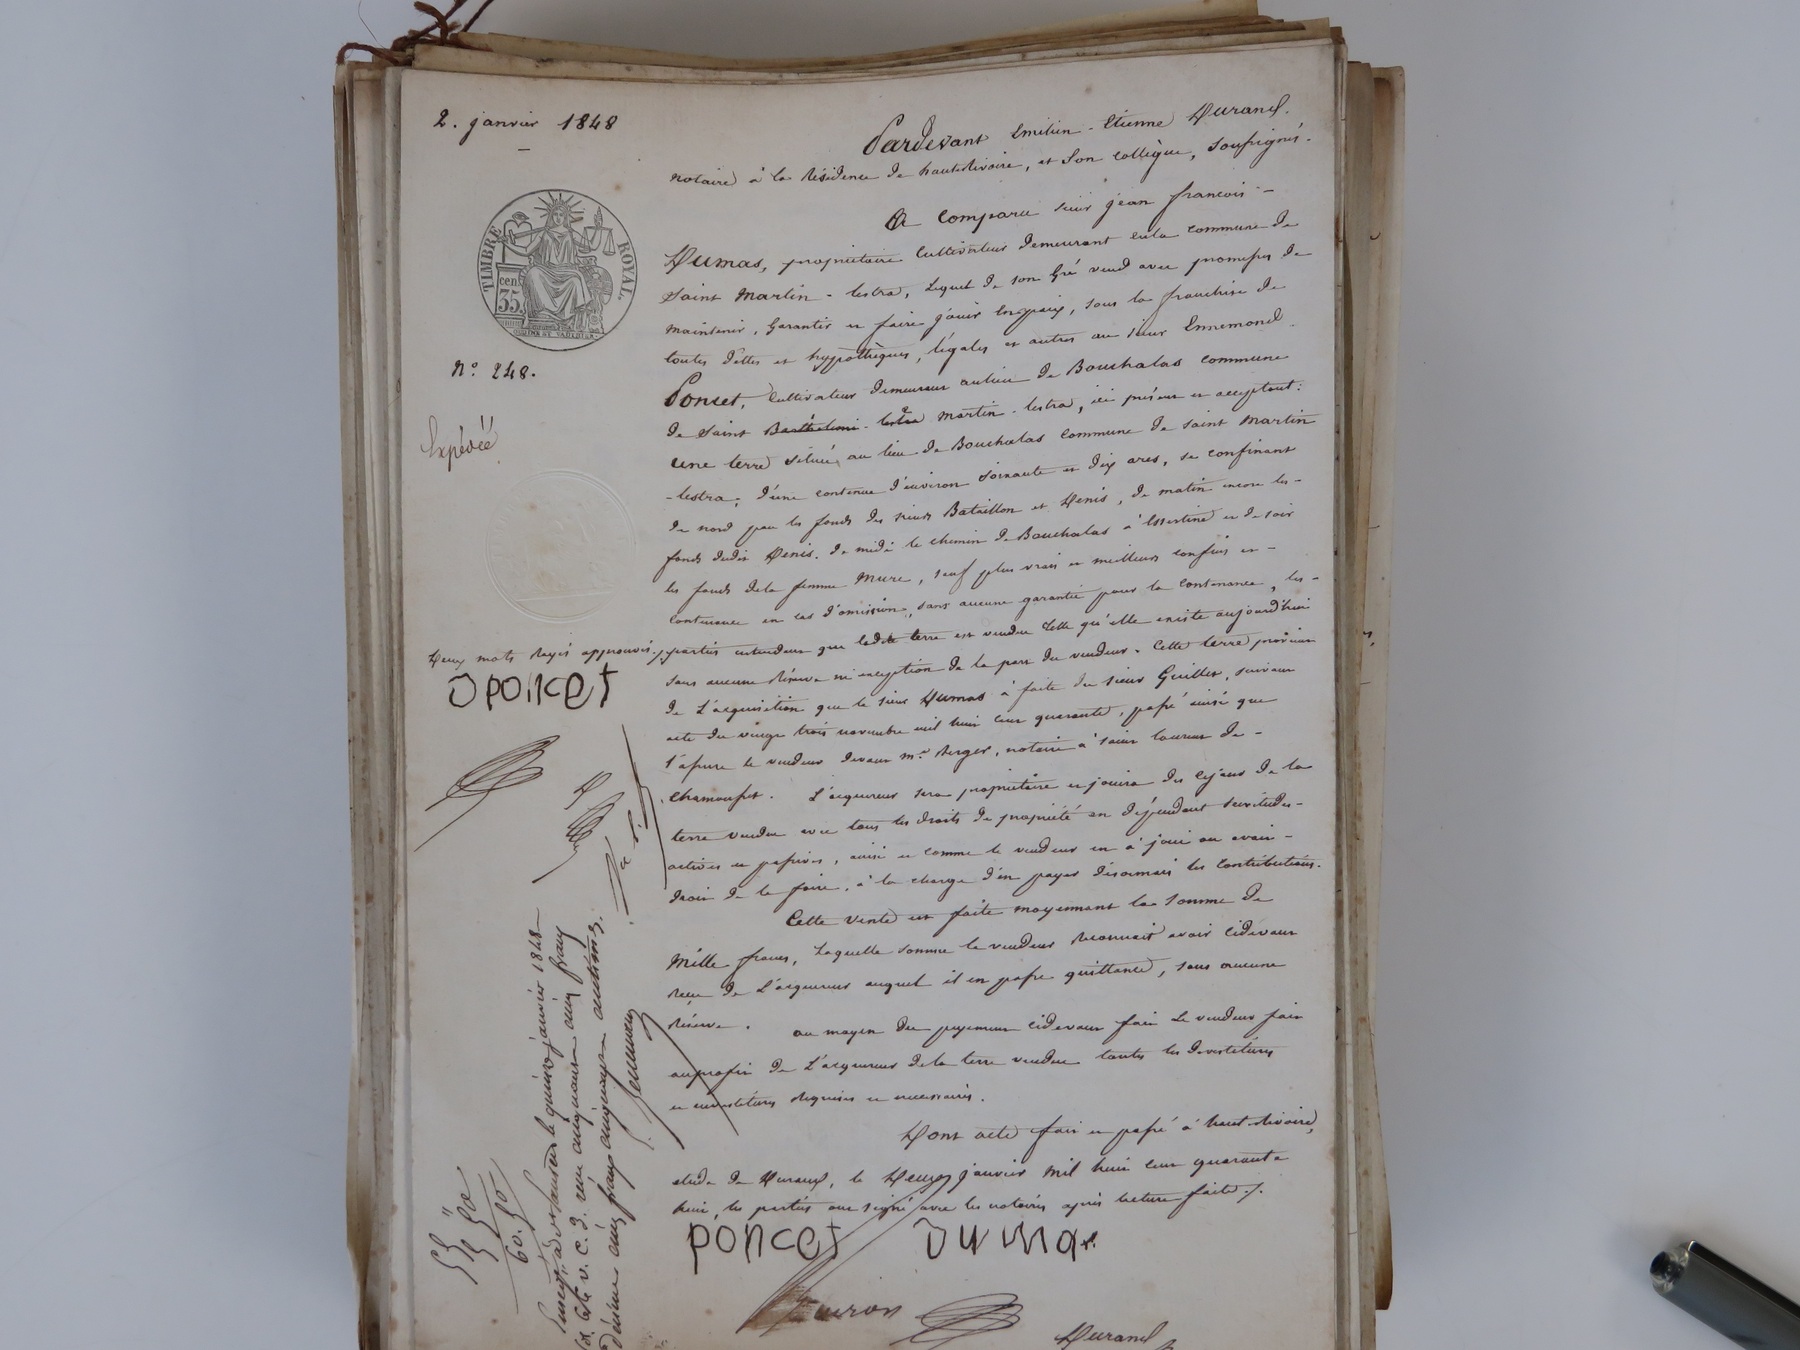 2. janvier 1848
Pardevant Emilien-Etienne Durand.
notaire à la résidence de hauterivoire, et son collègue, soussignés.
A comparu sieur jean francois
Dumas, propriétaire cultivateur demeurant enla commune de
Saint Martin-lestra, Lequel de son Gré vend avec promesses de
maintenir, Garantir et faire jouir en paix, sous la franchise de
toutes dettes et hyppothèques, légales et autres au sieur Ennemond
Poncet, cultivateur demeurant aulieu de Bouchalas commune
de Saint Barthelemi-lestra Martin-lestra, ici présent et acceptant:
une terre située au lieu de Bouchalas commune de saint Martin
-lestra, d'une contenue d'environ soixante et dix ares, se confinant
de nord par les fonds des sieurs Bataillon et Denis, de matin encore les
fonds dudit Denis, de midi le chemin de Bouchalas à Essertine et de soir
les fonds dela femme Mure, sauf plus vrais et meilleurs confins et
contenance en cas d'omission, sans aucune garantie pour la contenance, les
parties entendant que ladite terre est vendue telle qu'elle existe aujourd'hui
sans aucune réserve ni exception de la part du vendeur. Cette terre provient
de L'acquisition que le sieur Dumas à faite du sieur Guillet, suivant
acte du vingt trois novembre mil huit cent quarante, passé ainsi que
l'assure le vendeur devant me. Berger, notaire à saint laurent de
chamousset. L'acquereur sera propriétaire et jouira dès cejour de la
terre vendue avec tous les droits de propriété en dépendant servitudes
actives et passives, ainsi et comme le vendeur en à joui ou avait
droit de le faire, à la charge d'en payer désormais les contributions.
Cette vente est faite moyennant la somme de
Mille francs, Laquelle somme le vendeur reconnait avoir cidevant
reçu de L'acquereur auquel il en passe quittance, sans aucune
réserve. au moyen du payement cidevant fait Le vendeur fait
auprofit de L'acquereur dela terre vendue toutes les devestitures
et investitures requises et nécessaires.
Dont acte fait et passé à hauterivoire,
étude de Durand, le Deux janvier mil huit cent quarante
huit, les parties ont signé avec les notaires après lecture faite./.
poncet Dumas
Durand
TIMBRE ROYAL.
35 cen.
No. 248.
Expédié
Deux mots rayés approuvés./.
poncet
le quinze janvier 1848
55"
5 50
60.50